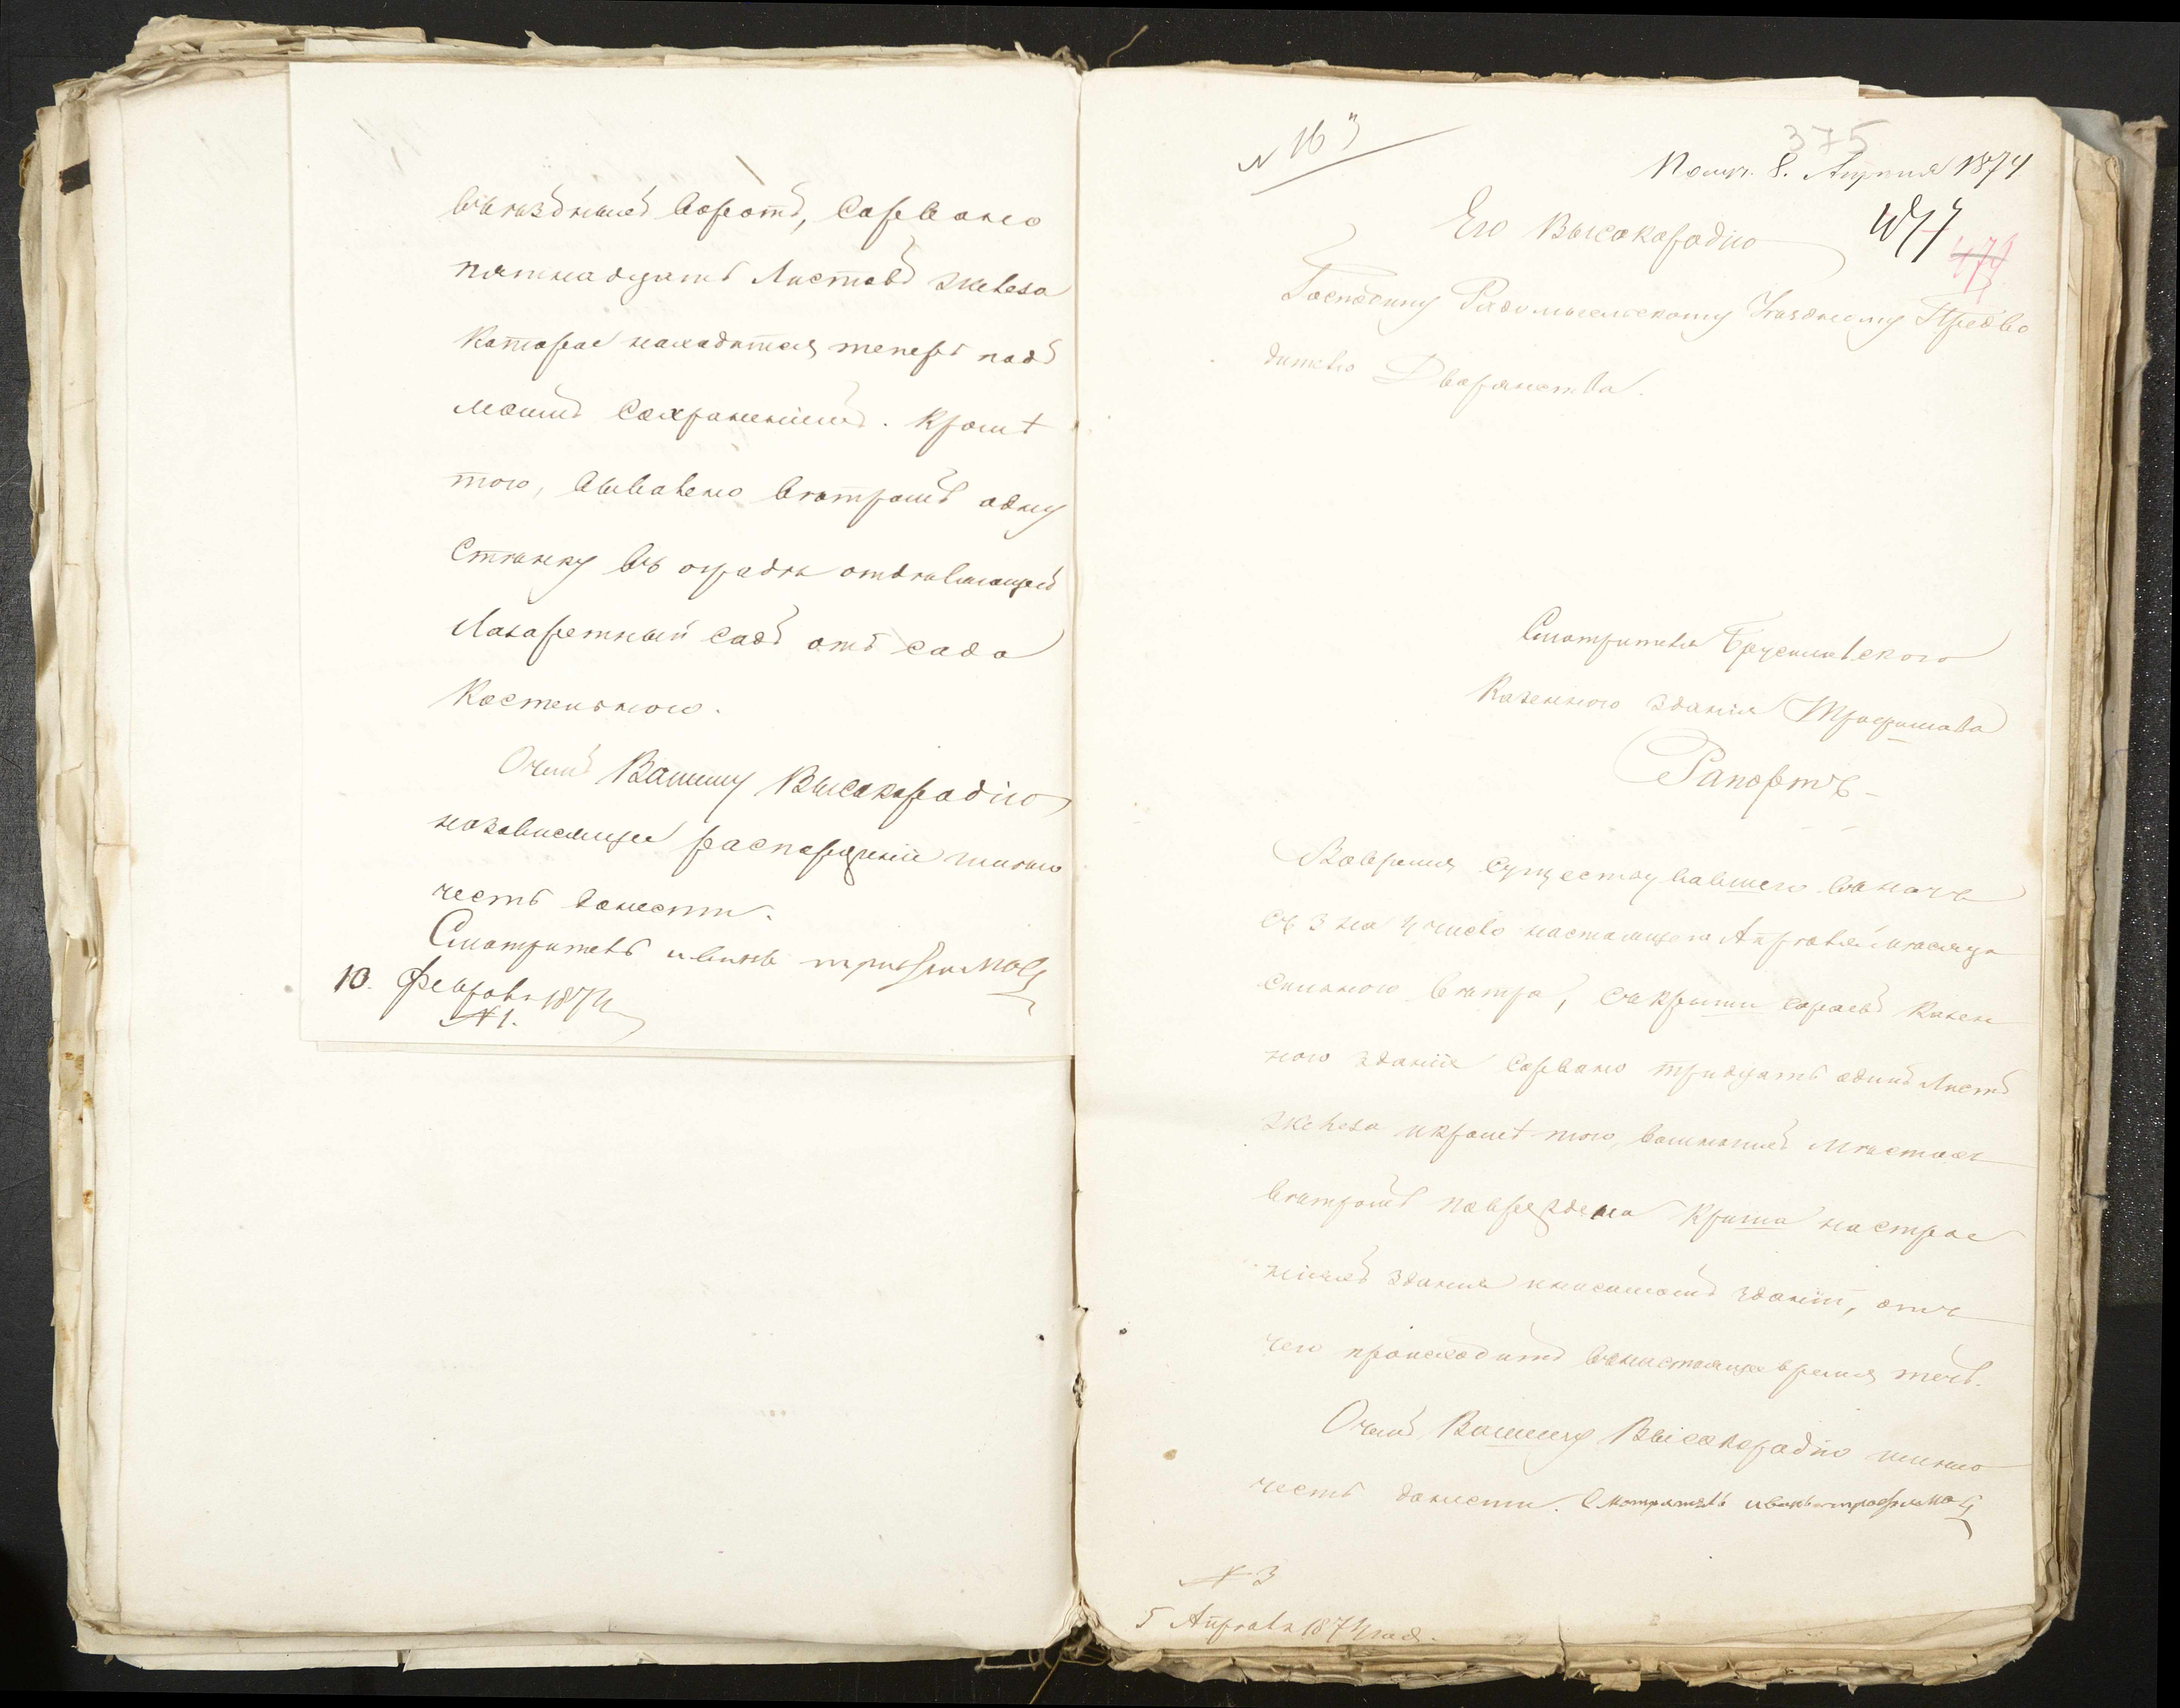 въѣздныхъ воротъ, сорвано
пятнадцать листовъ желѣза
каторое находится теперь подъ
моимъ сохраненіемъ. Кромѣ
того, вывалено вѣтромъ одну
стѣнку въ оградѣ отдѣляющей
Лазаретный садъ отъ сада
Костельного.
О чемъ Вашему Высокородію
на зависящее распоряженіе имѣю
честь донести.
Смотритель иванъ трофимовъ
10. Февраля 1874
№ 1.
№ 163
375
Получ. 8. Апреля 1874
477
Его Высокородію
Господину Радомысльскому Уѣздному Предво
дителю Дворянства.
Смотрителя Брусиловского
Казенного здания Трофимова
Рапортъ
Вовремя существовавшего въ ночь
съ 3 на 4 число настоящего Апрѣля мѣсяца
сильного вѣтра, съ крыши сараевъ Казен
ного зданія сорвано тридцать одинъ листъ
желѣза и кромѣ того, въ иныхъ мѣстахъ
вѣтромъ повреждена крыша на строе
ніяхъ здания и на самомъ зданіи, отъ
чего происходитъ въ настоящее время течь.
О чемъ Вашему Высокородію имѣю
честь донести. Смотритель иванъ трофимовъ
№ 3
5 Апрѣля 1874 год.